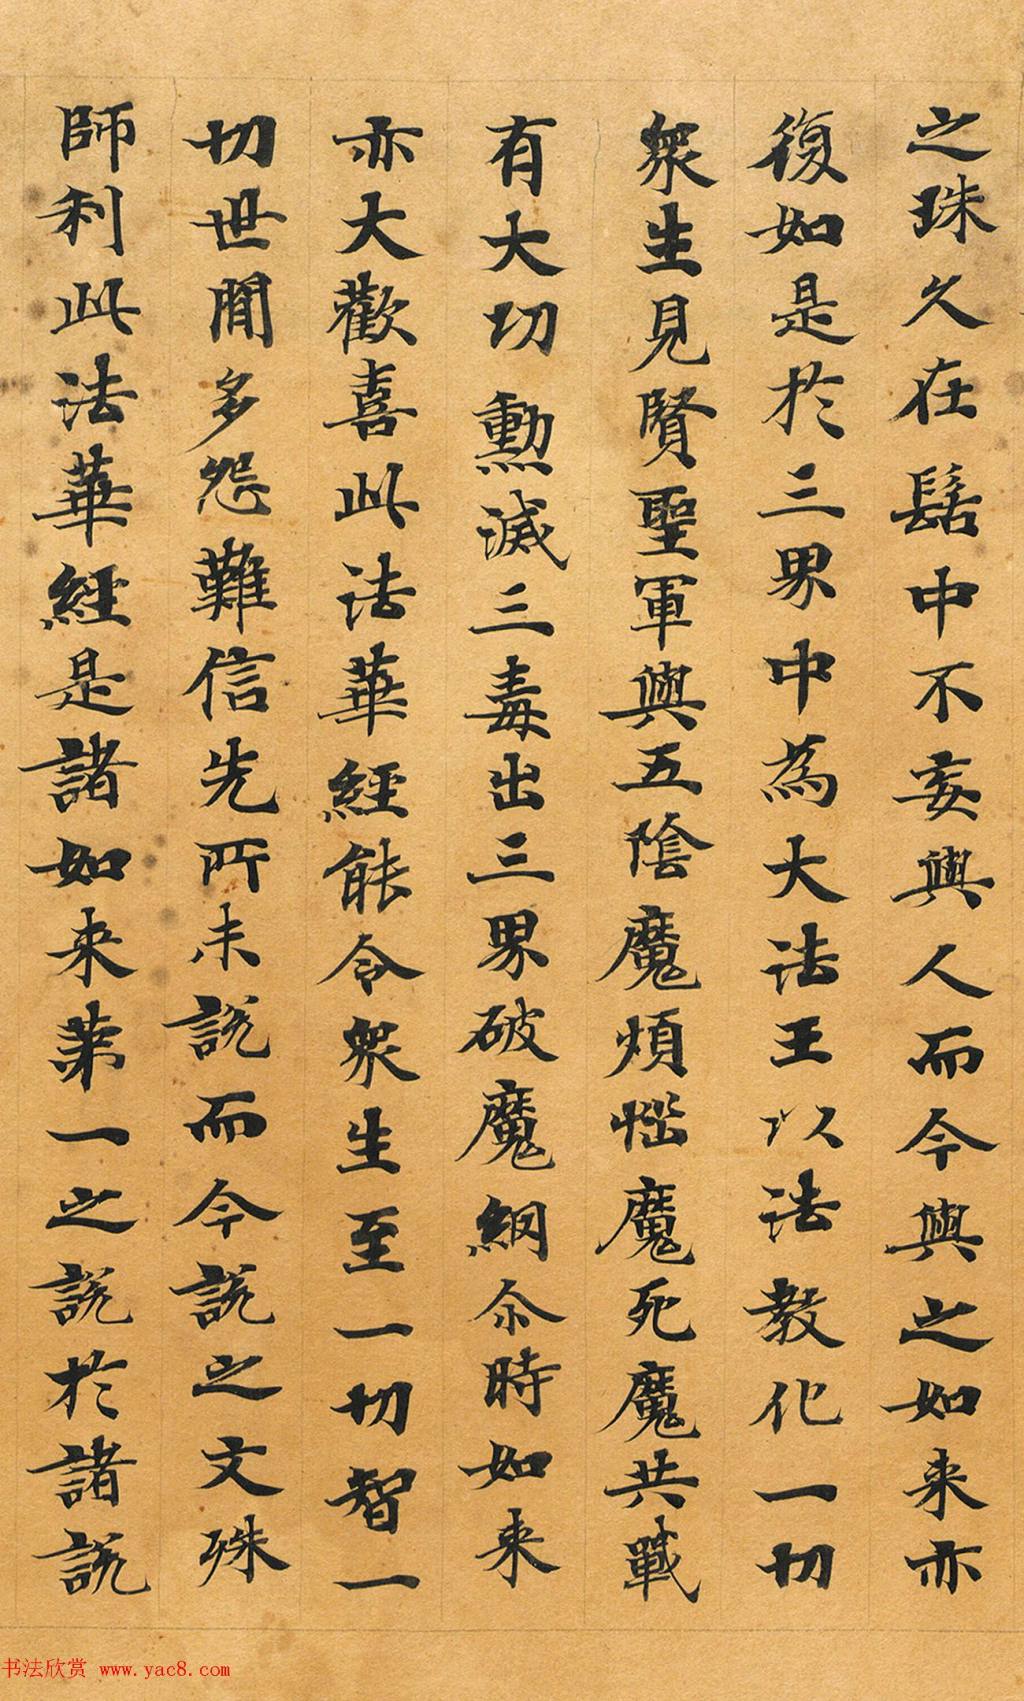 之珠久在髻中不妄與人而今與之如来亦
復如是於三界中為大法王以法教化一切
衆生見賢聖軍與五陰魔煩惱魔死魔共戰
有大功勳滅三毒出三界破魔網尒時如来
亦大歡喜此法華經能令衆生至一切智一
切世閒多怨難信先所未說而今說之文殊
師利此法華經是諸如来第一之說於諸說
书法欣赏 www.yac8.com